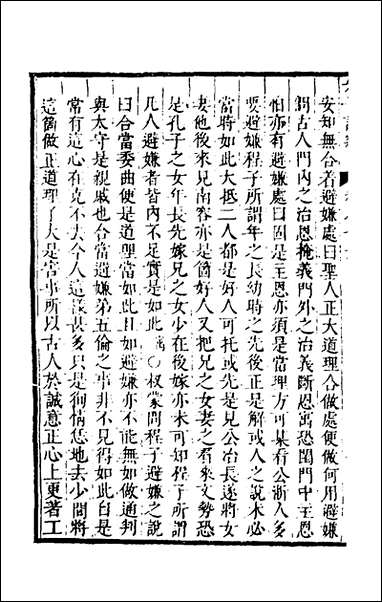 安知無合着避嫌處曰聖人正大道理合做處便做何用避嫌
問古人門内之治恩掩義門外之治義斷恩寓恐閨門中主恩
怕亦有避嫌處曰固是主恩亦須是當理方可某看公浙人多
要避嫌程子所謂年之長幼時之先後正是解或人之說未必
當時如此大抵二人都是好人可托或先是見公冶長遂將女
妻他後來見南容亦是箇好人又把兄之女妻之看來文勢恐
是孔子之女年長先嫁兄之女少在後嫁亦未可知程子所謂
凡人避嫌者皆内不足實是如此○叔蒙問程子避嫌之說
曰合當委曲便是道理當如此且如避嫌亦不能無如做通判
與太守是親戚也合當避嫌第五倫之事非不見得如此自是
常有這心在克不去今人這㨾甚多只是徇情恁地去少間將
這箇做正道理了大是害事所以古人於誠意正心上更著工